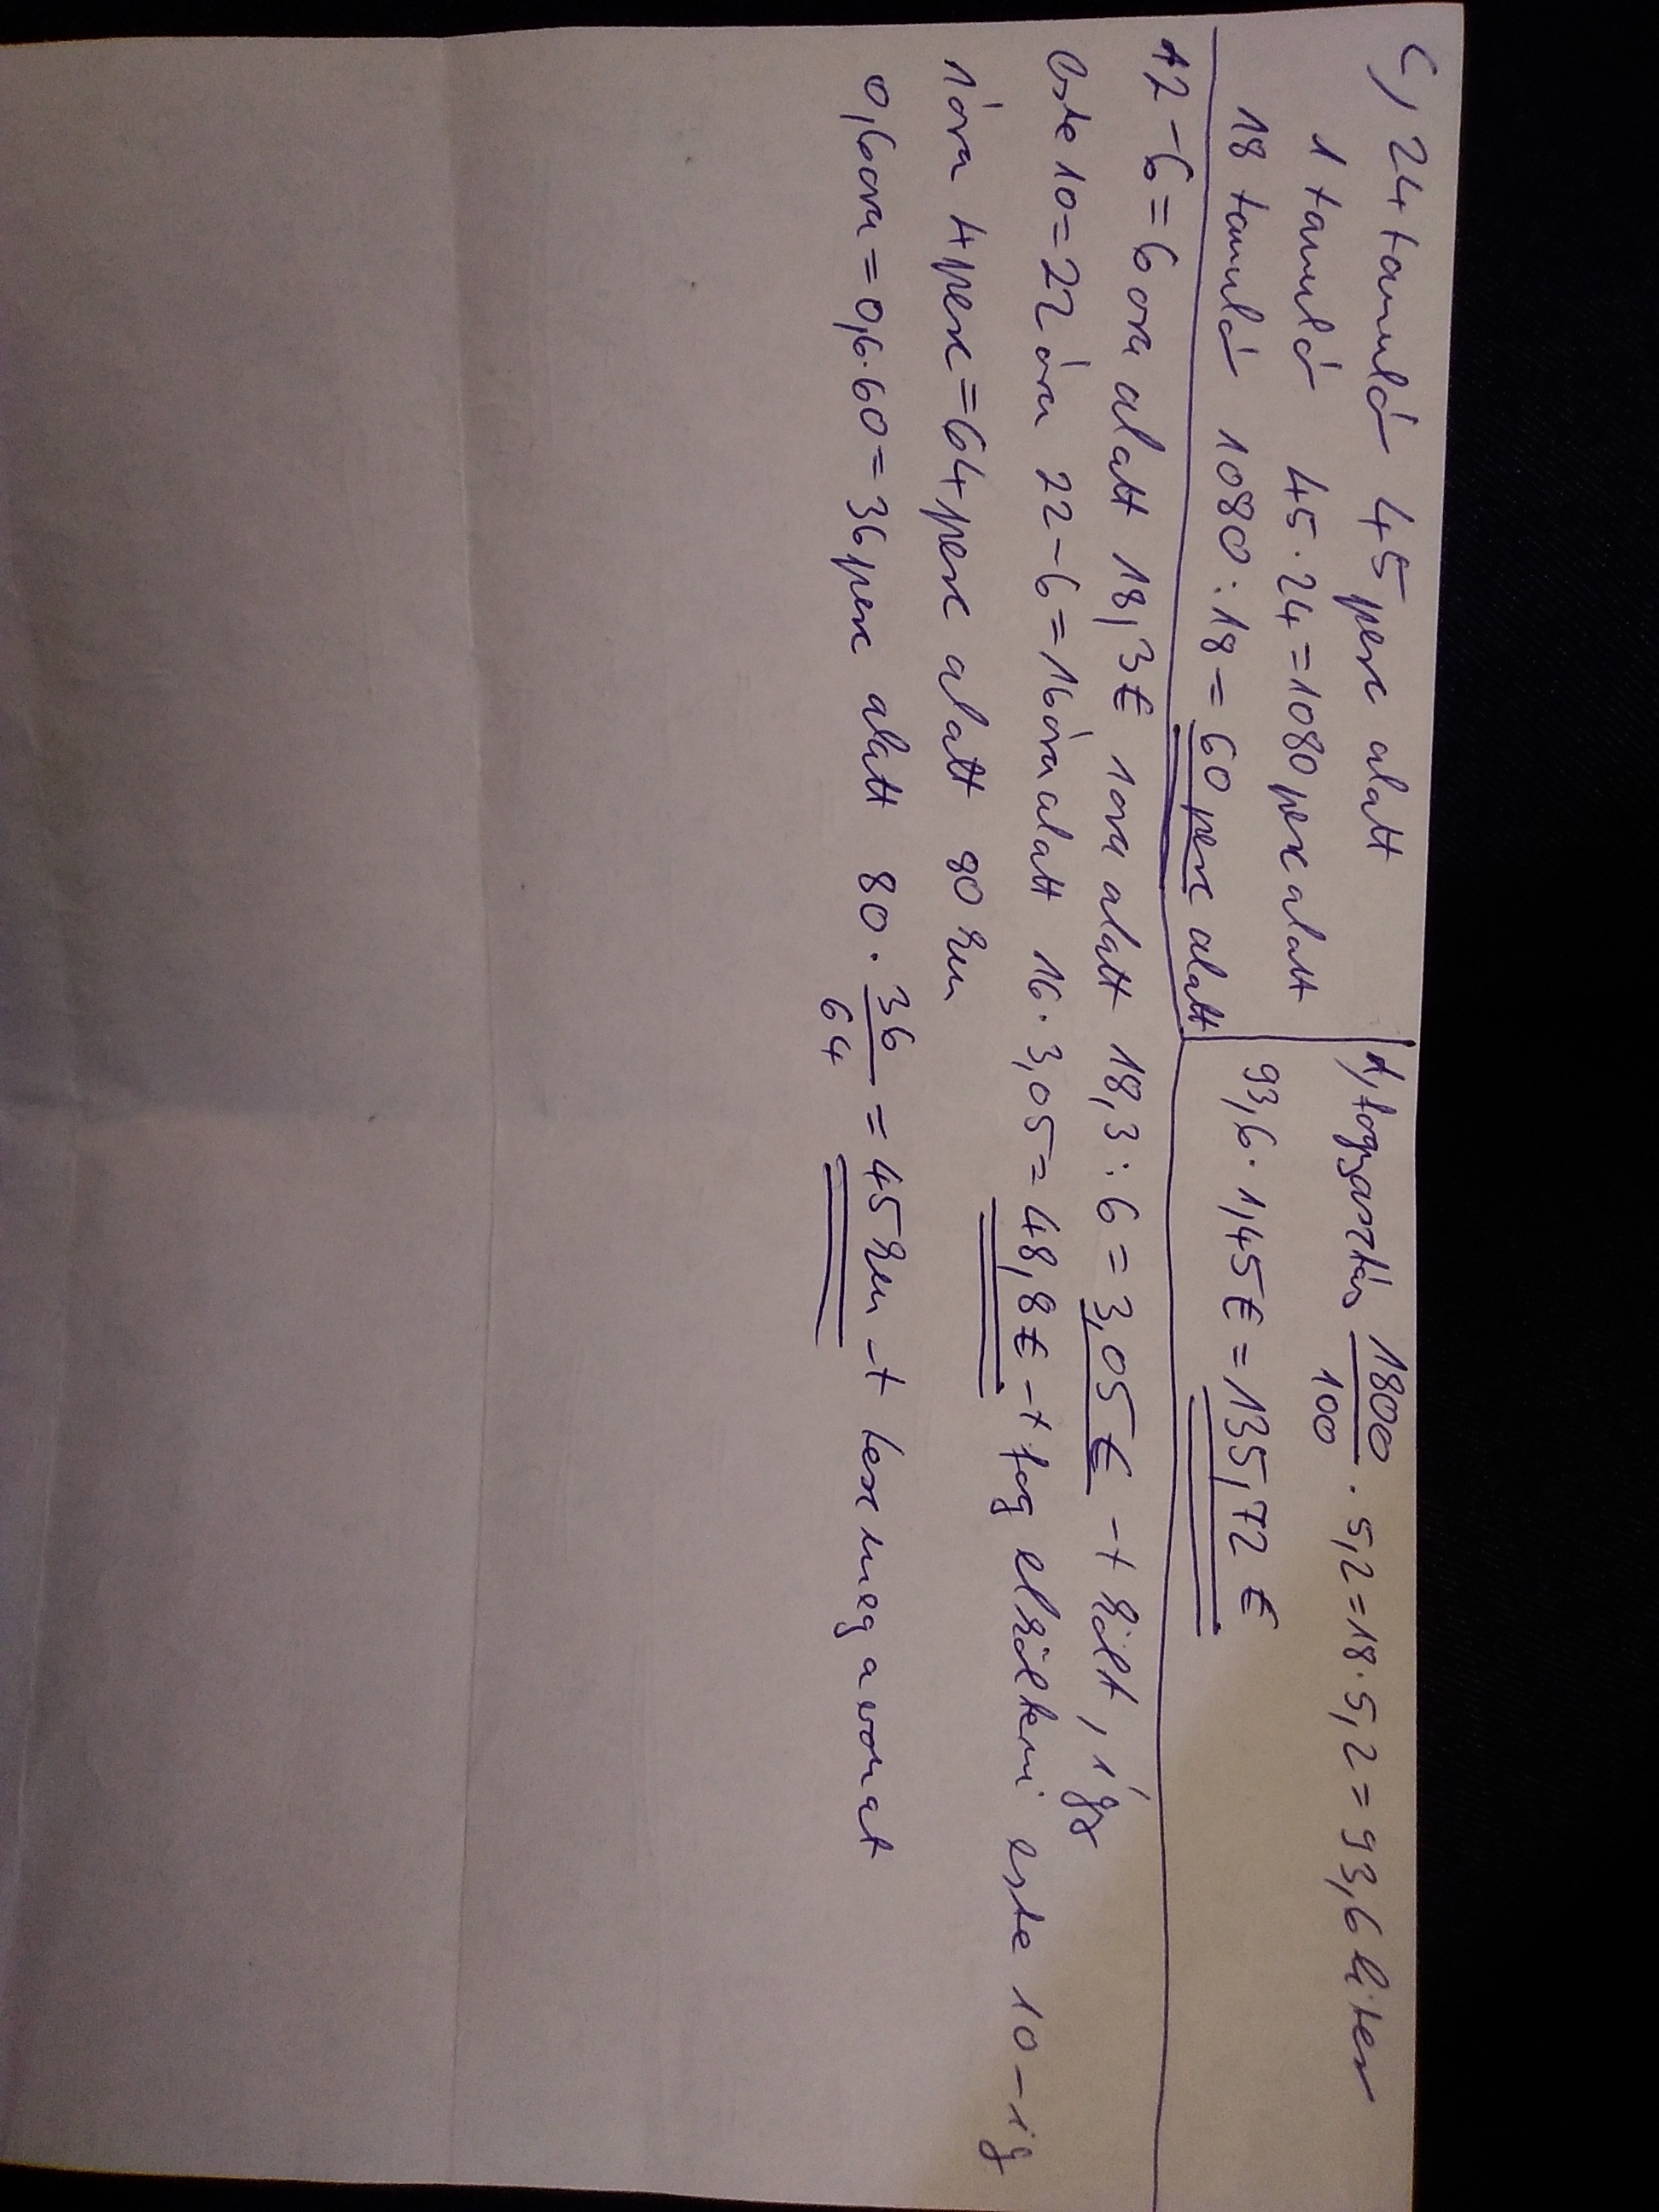 c, 24 tanuló 45 perc alatt
1 tanuló 45·24=1080 perc alatt
18 tanuló 1080:18=60 perc alatt
d, fogyasztás 1800/100 · 5,2=18·5,2=93,6 liter
93,6·1,45€=135,72€
12-6=6 óra alatt 18,3€ 1 óra alatt 18,3:6=3,05€-t költ, így
este 10=22 óra 22-6=16 óra alatt 16·3,05=48,8€-t fog elkölteni este 10-ig
1 óra 4 perc=64 perc alatt 80 km
0,6 óra=0,6·60=36 perc alatt 80·36/64=45 km-t tesz meg a vonat